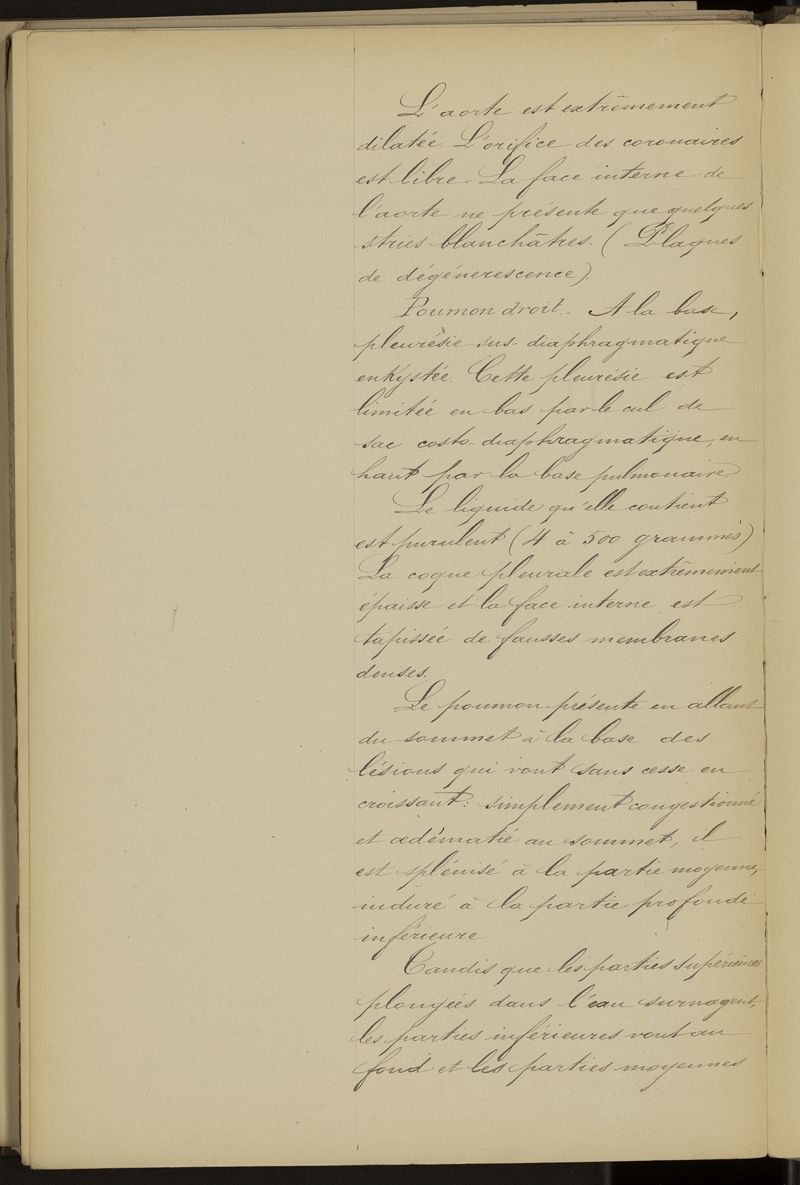 L'aorte est extrêmement
dilatée. L'orifice des coronaires
est libre. La face interne de
l'aorte ne présente que quelques
stries blanchâtres. (Plaques
de dégénerescence).
Poumon droit. A la base,
pleurésie sus-diaphragmatique
enkystée. Cette pleurésie est
limitée en bas par le cul de
sac costo-diaphragmatique, en
haut par la base pulmonaire.
Le liquide qu'elle contient
est purulent (4 à 500 grammes)
La coque pleurale est extrêmement
épaisse et la face interne est
tapissée de fausses membranes
denses.
Le poumon présente en allant
du sommet à la base des
lésions qui vont sans cesse en
croissant: simplement congestionné
et œdématié au sommet, il
est splénisé à la partie moyenne,
induré à la partie profonde
inférieure
Tandis que les parties supérieures
plongées dans l'eau surnagent,
les parties inférieures vont au
fond et les parties moyennes